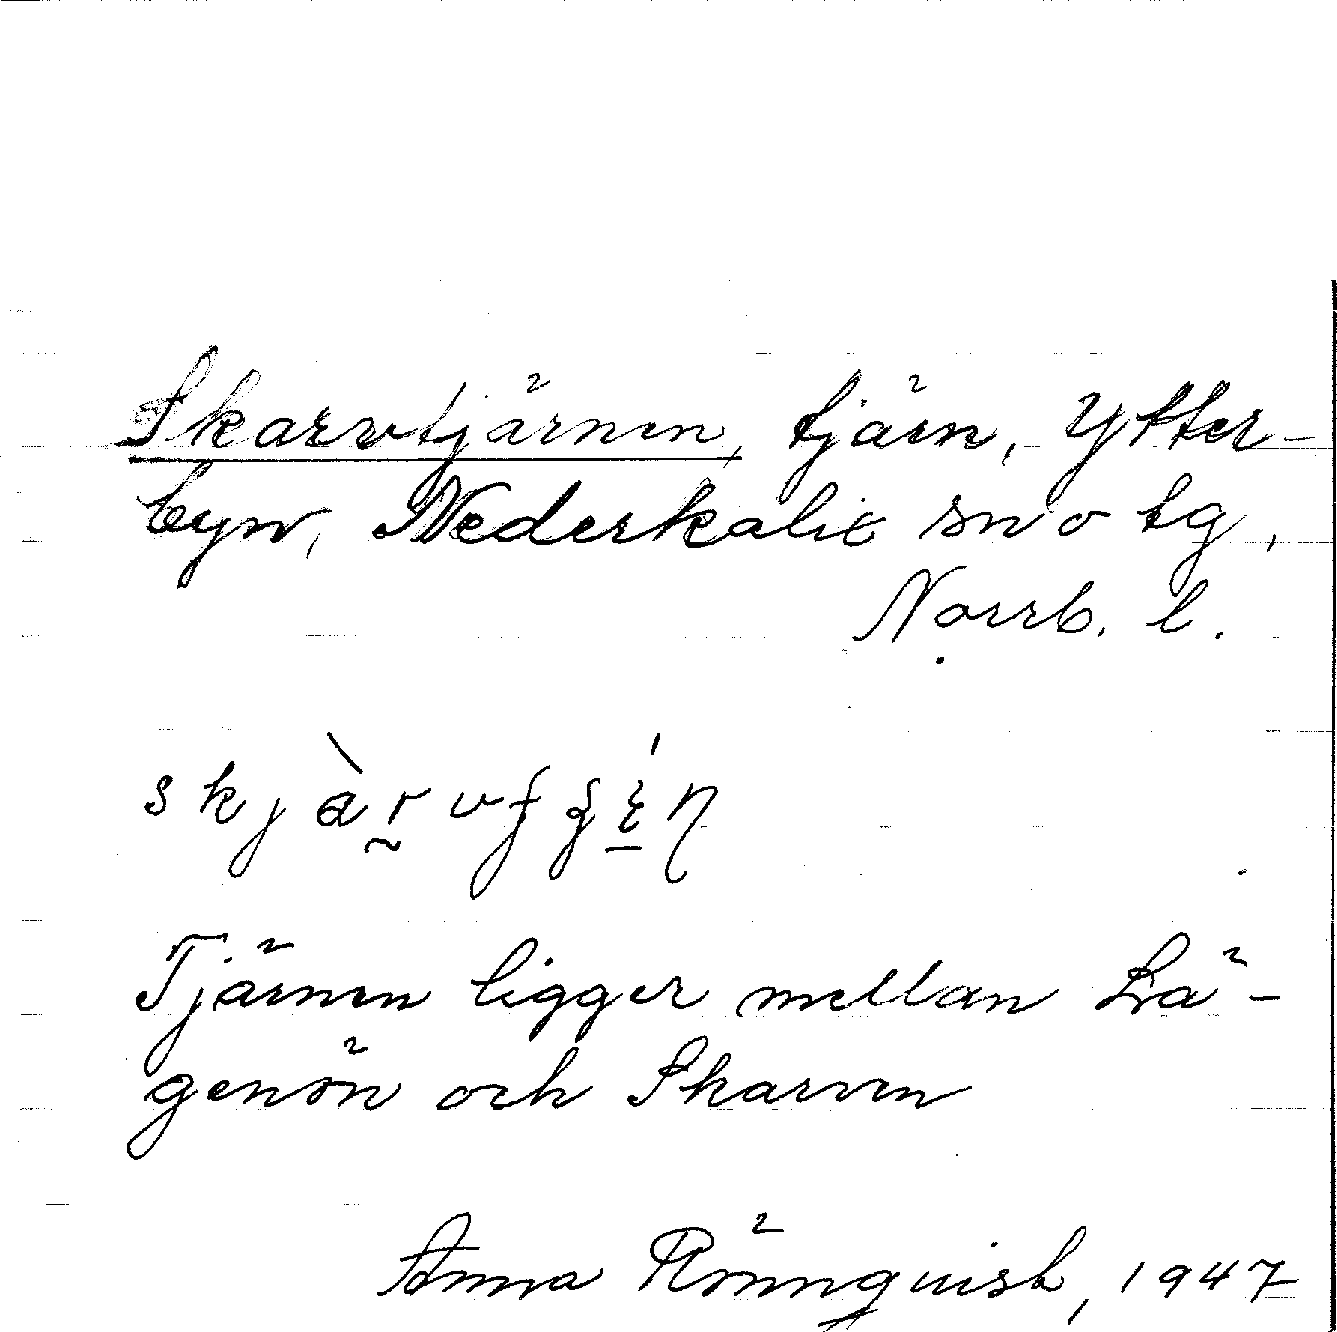 Skarvtjärnen, tjärn, Ytter-
byn, Nederkalix sn o tg,
Norrb. l.
Tjärnen ligger mellan Lä-
genön och Skarven
Anna Rönnquist, 1947